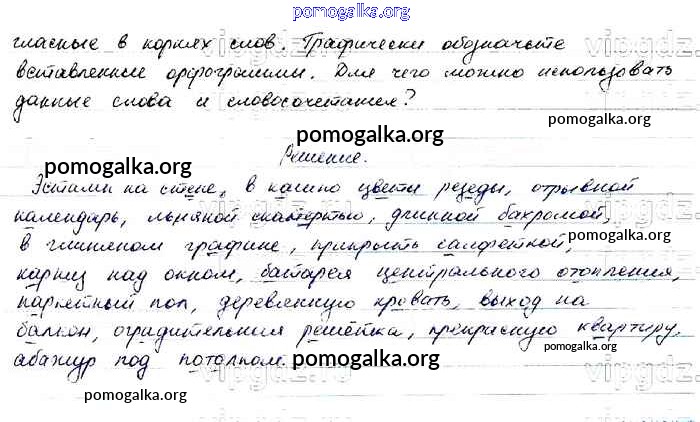 pomogalka.org
гласные в корнях слов. Графически обозначьте
вставленные орфограммы. Для чего можно использовать
данные слова и словосочетания?
pomogalka.org
Решение.
pomogalka.org
Эстамп на стене, в кашпо цветы резеды, отрывной
pomogalka.org
календарь, льняной скатертью, длинной бахромой,
pomogalka.org
в глиняном графине, прикрыть салфеткой,
карниз над окном, батарея центрального отопления,
pomogalka.org
паркетный пол, деревянную кровать, выход на
балкон, оградительная решётка, прекрасную квартиру,
pomogalka.org
абажур под потолком.
pomogalka.org
pomogalka.org